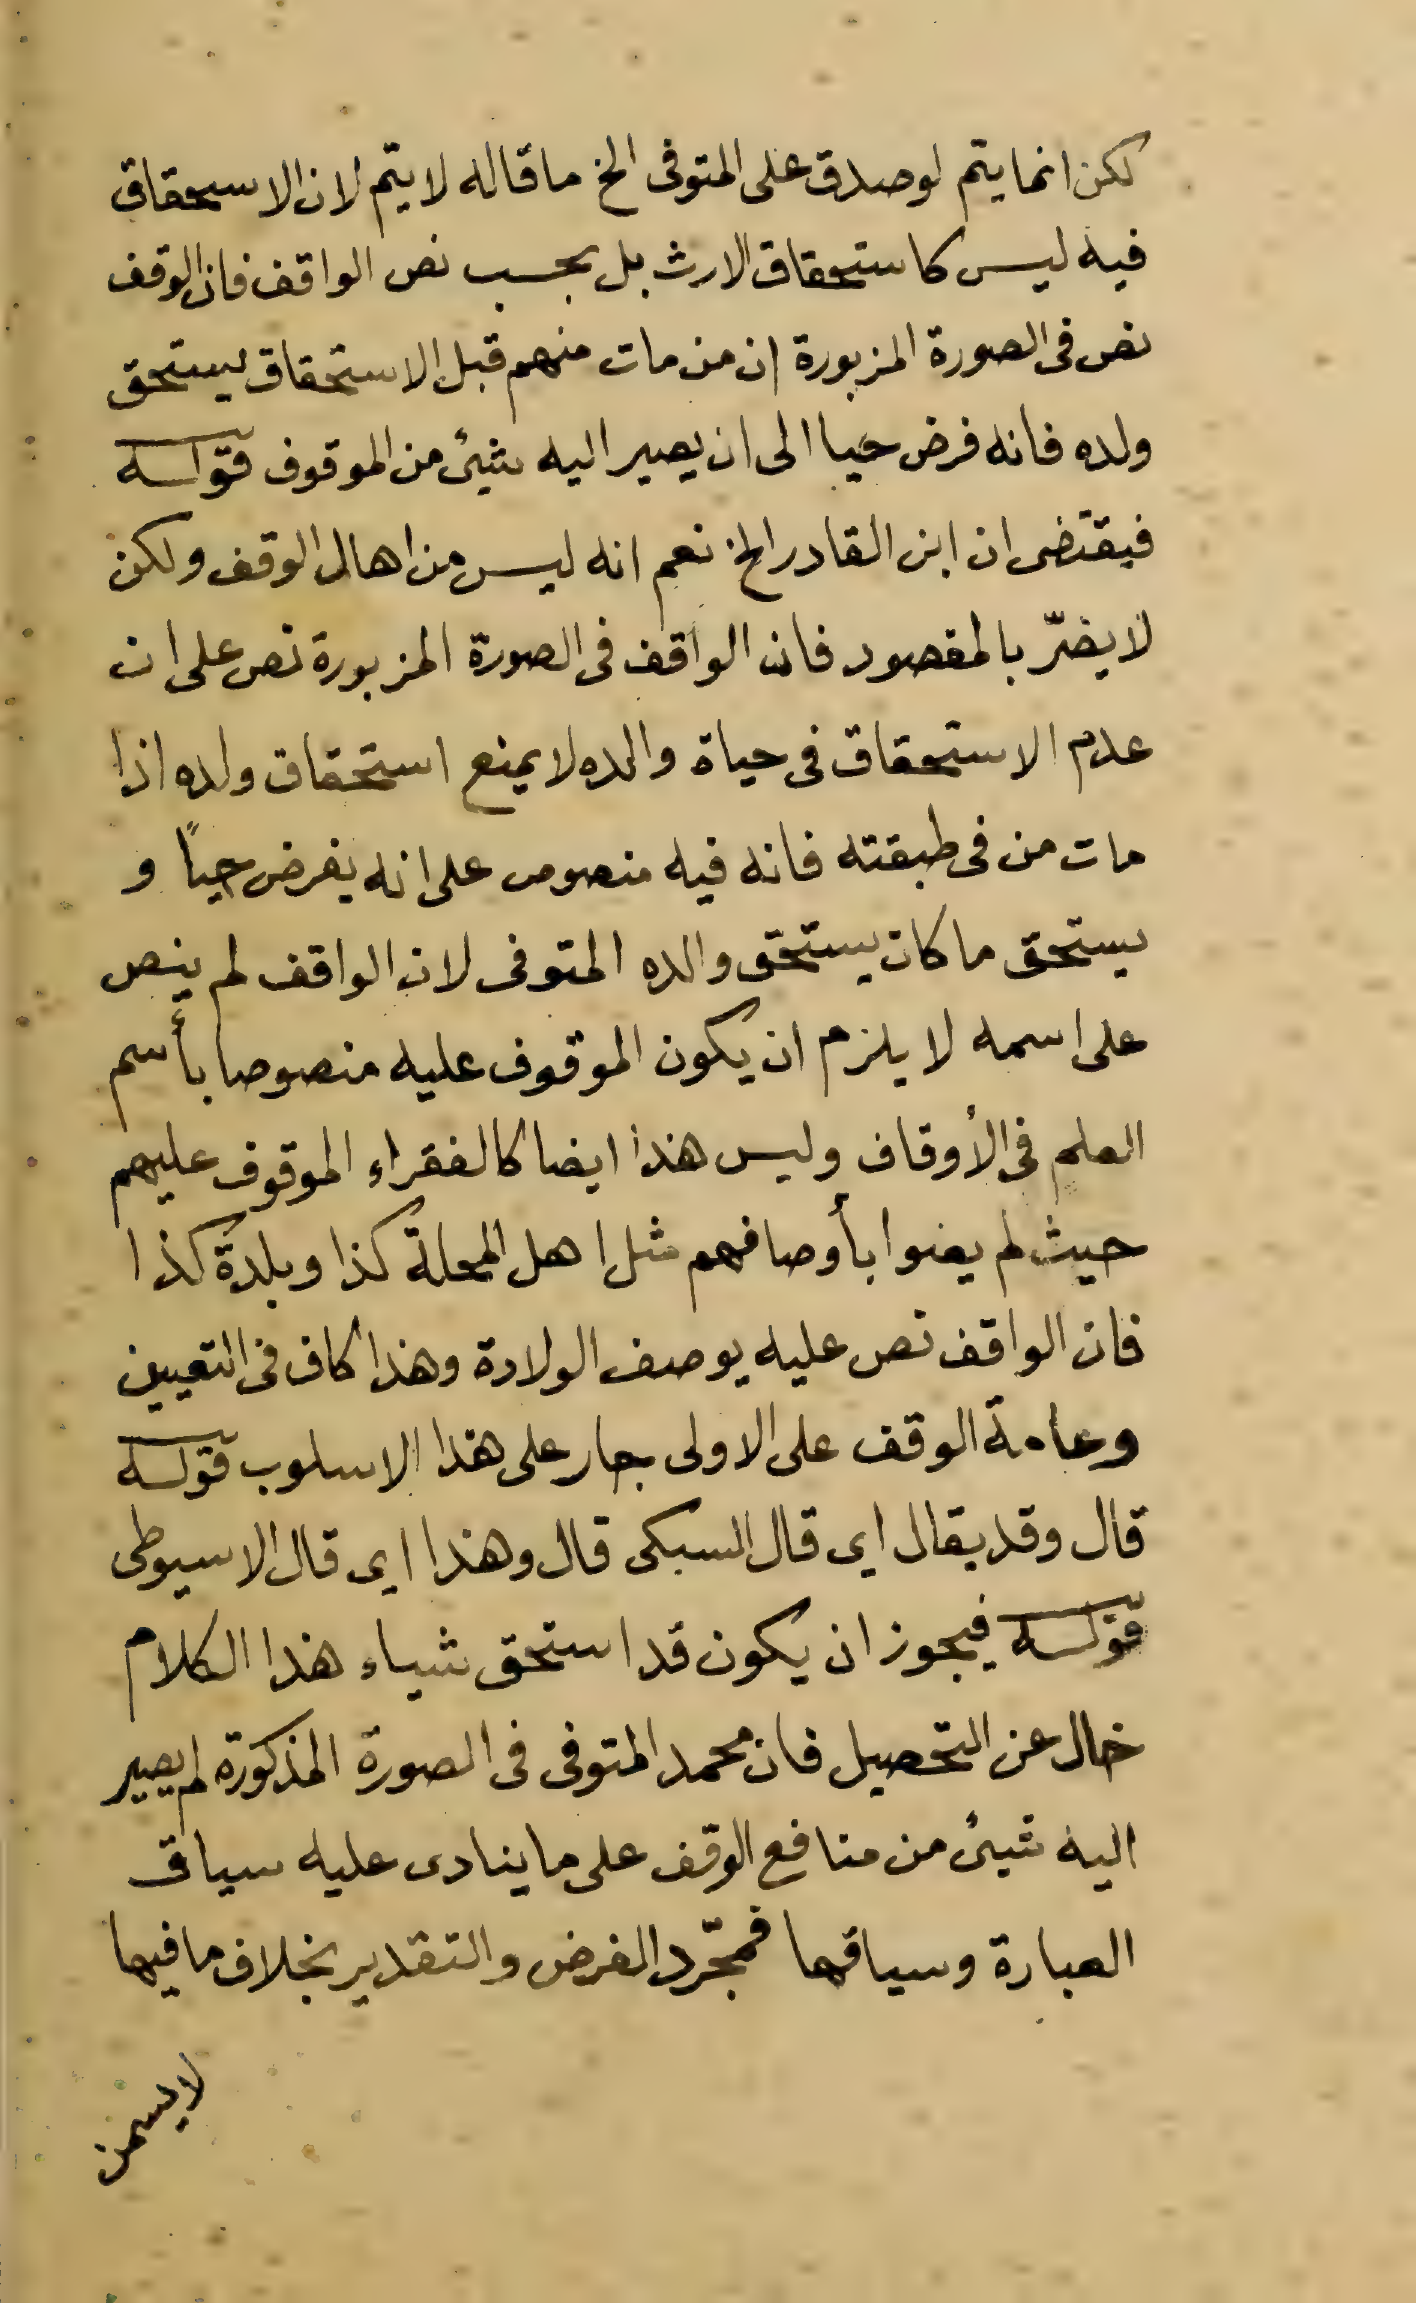 لكن انما يتم لو صدق على المتوفى الخ ما قاله لا يتم لان الاستحقاق
فيه ليس كاستحقاق الارث بل بحسب نص الواقف فان الوقف
نص فى الصورة المزبورة ان من مات منهم قبل الاستحقاق يستحق
ولده فانه فرض حيا الى ان يصير اليه شيئ من الموقوف قوله
فيقتضى ان ابن القادر الخ نعم انه ليس من اهال الوقف ولكن
لا يضرّ بالمقصود فان الواقف فى الصورة المزبورة نص على ان
عدم الاستحقاق فى حياة والده لا يمنع استحقاق ولده اذا
مات من فى طبقته فانه فيه منصوص على انه يفرض حيًا و
يستحق ما كان يستحق والده المتوفى لان الواقف لم ينص
على اسمه لا يلزم ان يكون الموقوف عليه منصوصا بأسم
العلم فى الأوقاف وليس هذا ايضا كالفقراء الموقوف عليهم
حيث لم يعنوا بأوصافهم مثل اهل المحلة كذا وبلدة كذا
فان الواقف نص عليه بوصف الولادة وهذا كاف فى التعيين
وعامة الوقف على الاولى جار على هذا الاسلوب قوله
قال وقد يقال اى قال السبكى قال وهذا اى قال الاسيوطى
قوله فيجوز ان يكون قد استحق شياء هذا الكلام
خال عن التحصيل فان محمد المتوفى فى الصورة المذكورة لم يصير
اليه شيئ من منافع الوقف على ما ينادى عليه سياق
العبارة وسياقها فمجّرد الفرض والتقدير بخلاف ما فيها
لا يسمن